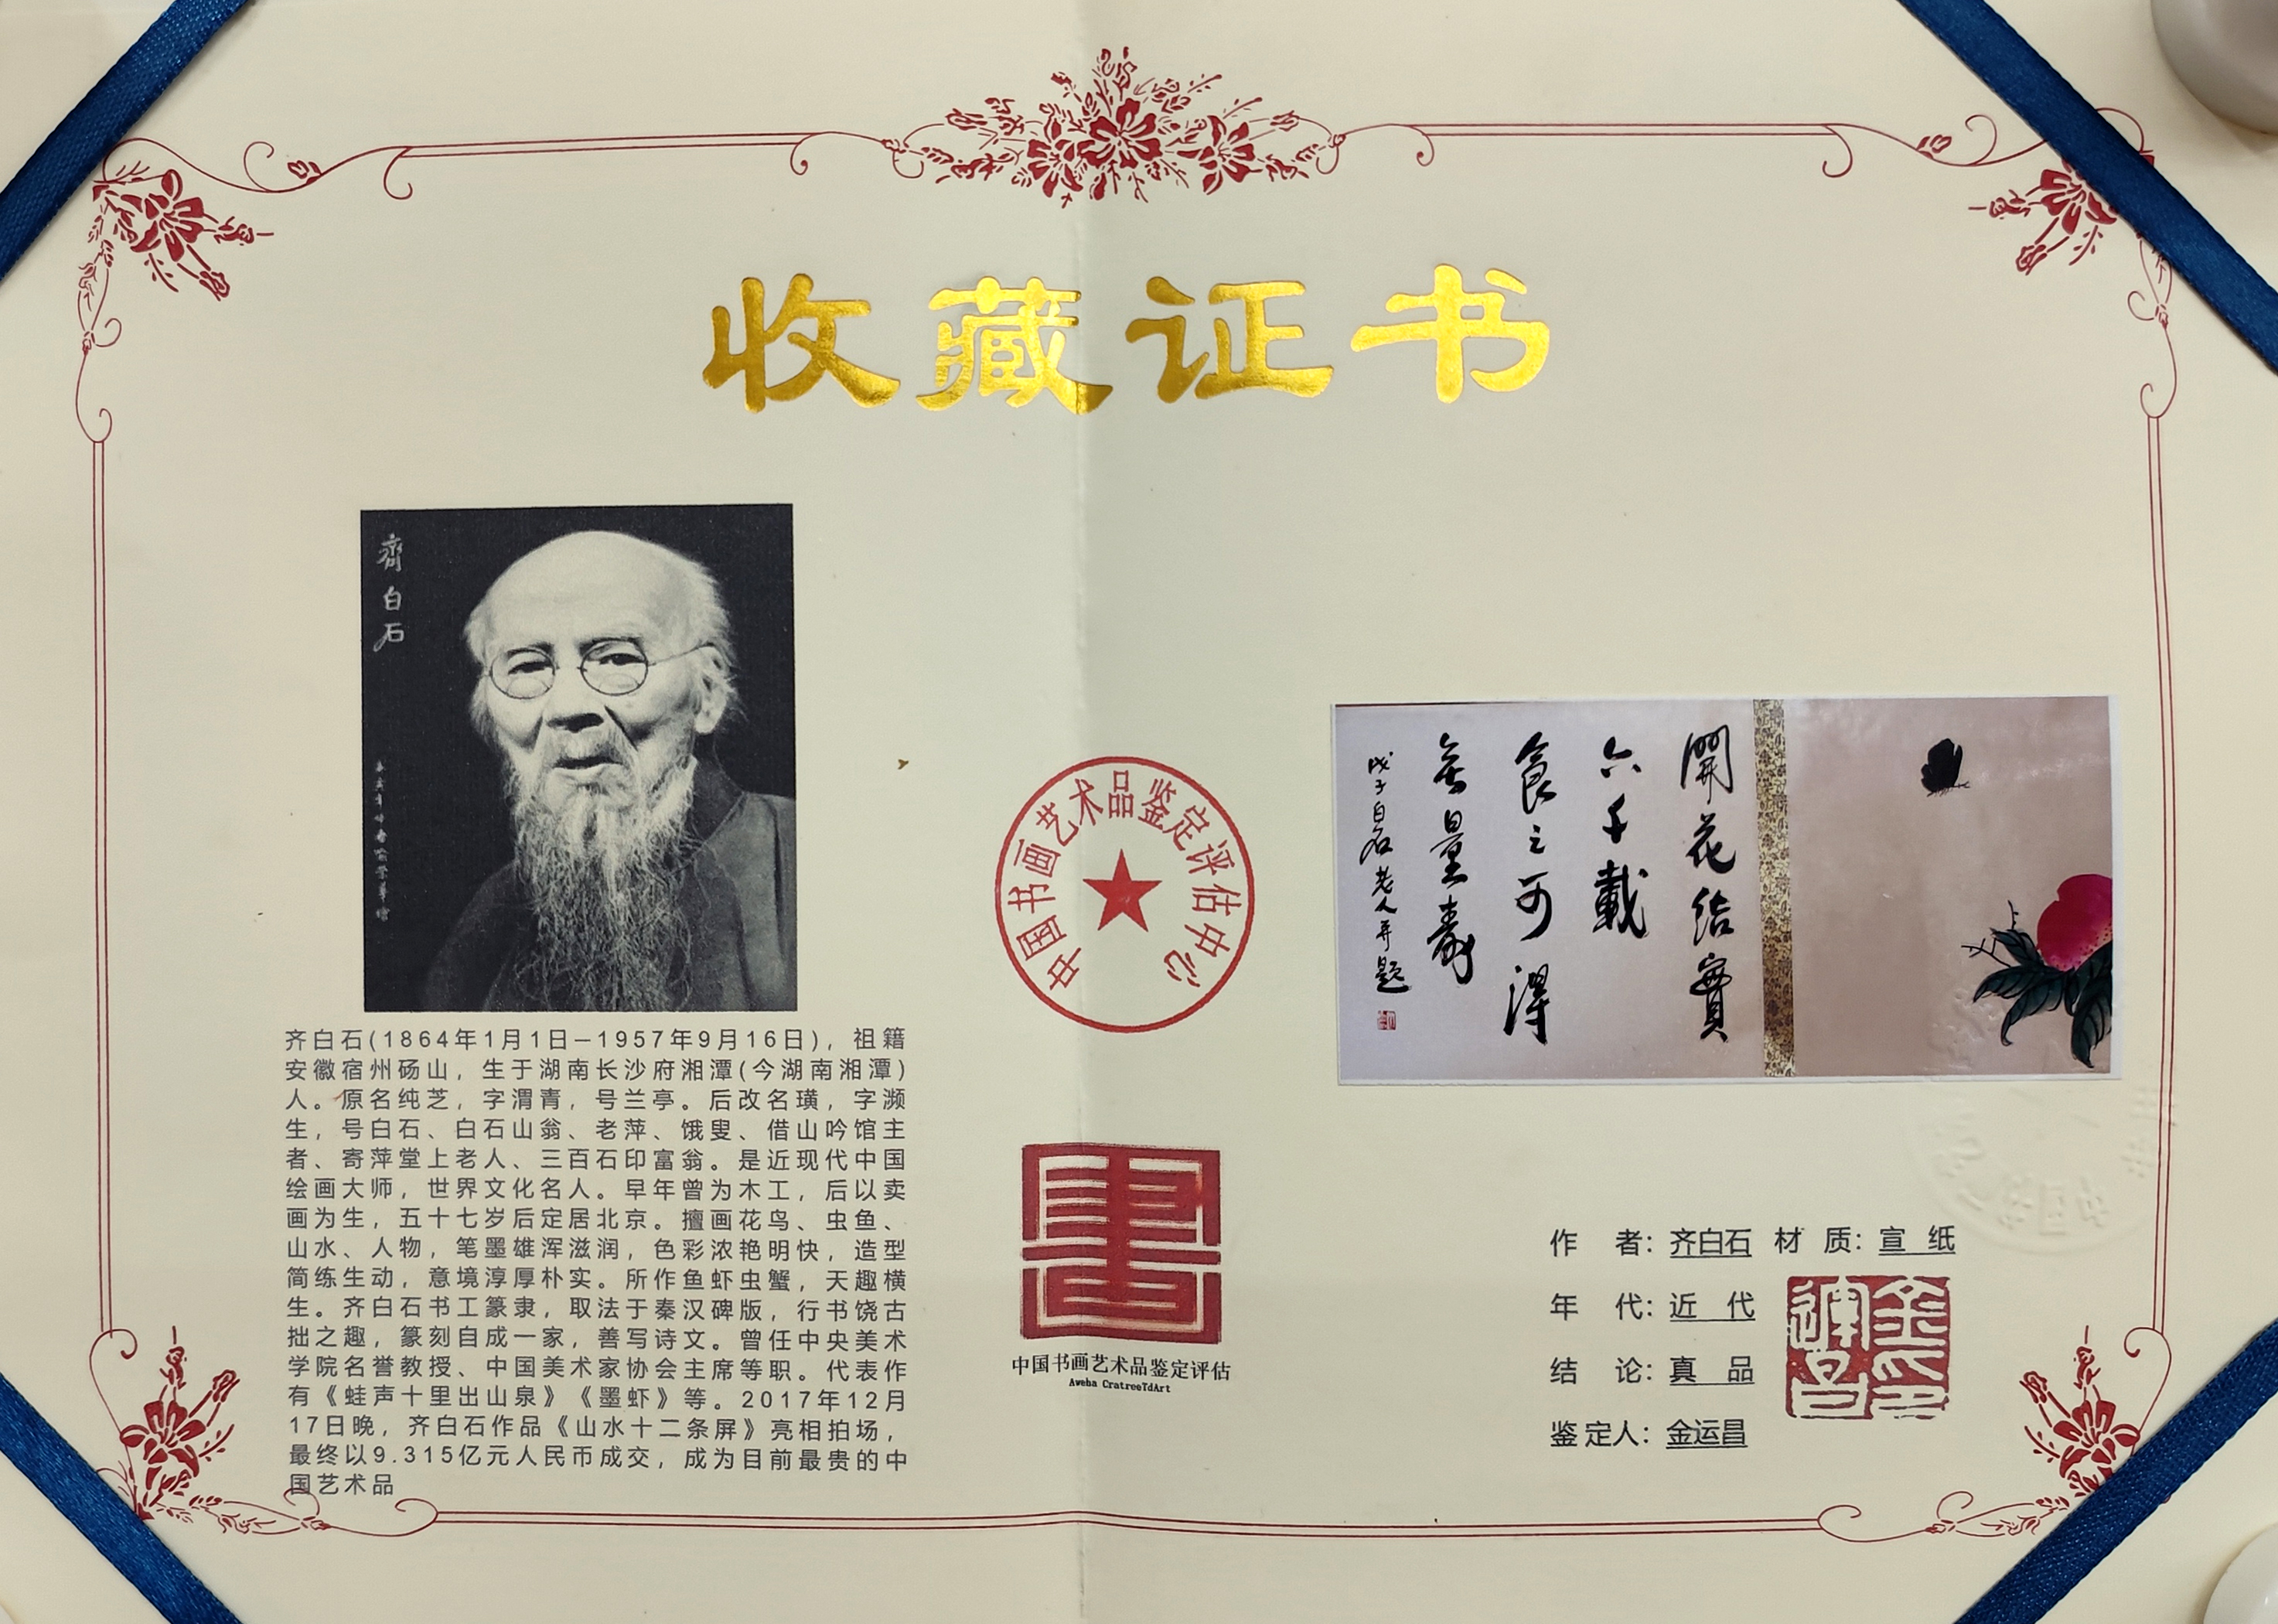 收藏证书
齐白石
齐白石(1864年1月1日—1957年9月16日)，祖籍
安徽宿州砀山，生于湖南长沙府湘潭(今湖南湘潭)
人。原名纯芝，字渭青，号兰亭。后改名璜，字濒
生，号白石、白石山翁、老萍、饿叟、借山吟馆主
者、寄萍堂上老人、三百石印富翁。是近现代中国
绘画大师，世界文化名人。早年曾为木工，后以卖
画为生，五十七岁后定居北京。擅画花鸟、虫鱼、
山水、人物，笔墨雄浑滋润，色彩浓艳明快，造型
简练生动，意境淳厚朴实。所作鱼虾虫蟹，天趣横
生。齐白石书工篆隶，取法于秦汉碑版，行书饶古
拙之趣，篆刻自成一家，善写诗文。曾任中央美术
学院名誉教授、中国美术家协会主席等职。代表作
有《蛙声十里出山泉》《墨虾》等。2017年12月
17日晚，齐白石作品《山水十二条屏》亮相拍场，
最终以9.315亿元人民币成交，成为目前最贵的中
国艺术品
中国书画艺术品鉴定评估中心
中国书画艺术品鉴定评估
Aweba CratreeTdArt
開花結實
六千載
食之可得
無量壽
戊子白石老人并題
作 者：齐白石 材 质：宣 纸
年 代：近 代
结 论：真 品
鉴定人：金运昌
金运昌印